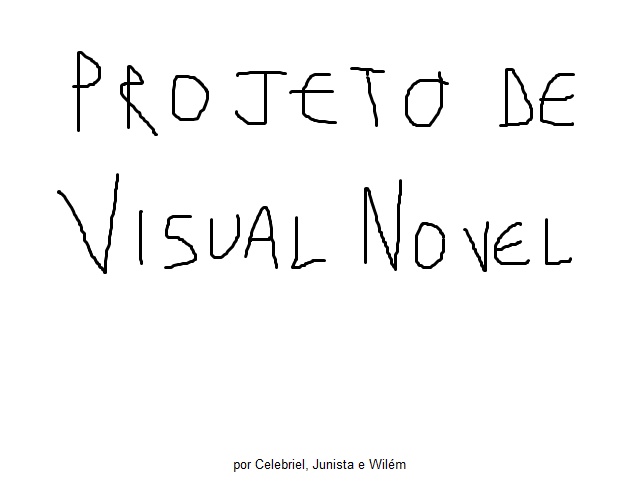 PROJETO DE
VISUAL NOVEL
por Celebriel, Junista e Wilém